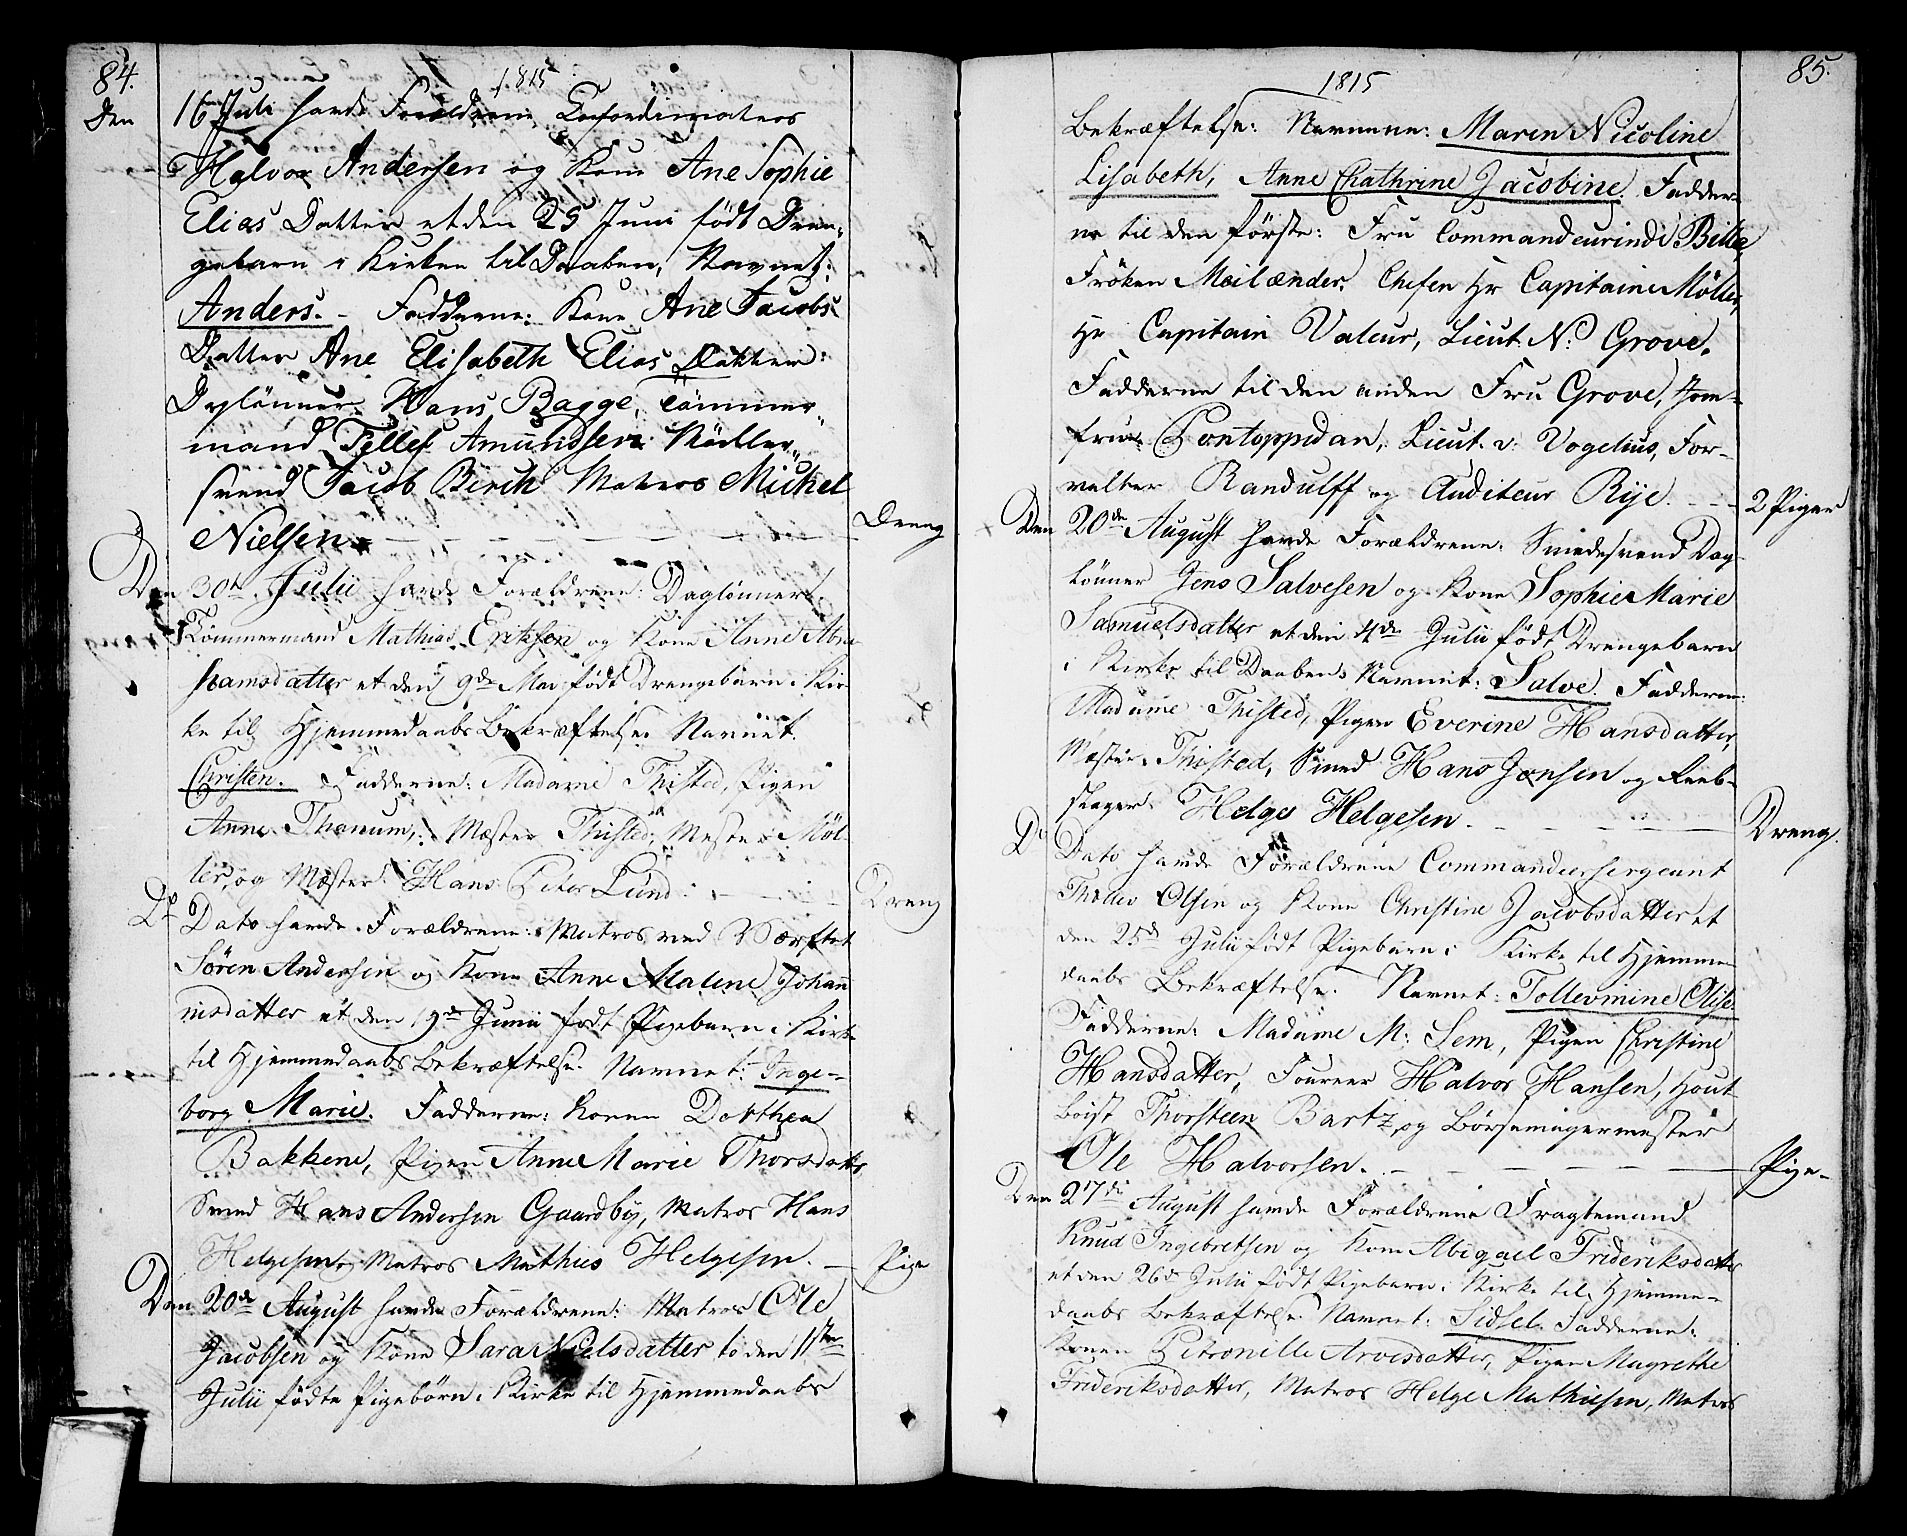 84.
1815
Den 16 Juli havde Forældrene
Halvor Andersen og Kone Ane Sophie
Elias Datter et den 25 Juni født Dren-
gebarn i Kirken til Daaben, Navnet:
Anders. - Fadderne: Kone Ane Jacobs
Datter Ane Elisabeth Elias Datter:
Daglønner Hans Bagge, Tömmer-
mand Tellef Amundsen Møller-
svend Jacob Birch Matros Michel
Nielsen. - - - Dreng
Den 30te Julii havde Forældrene: Daglønner
Tömmermand Mathias Eriksen og Kone Anne Abra
hamsdatter et den 9de Mai født Drengebarn i Kir-
ke til Hjemmedaabs Bekræftelse Navnet.
Christen. Fadderne: Madame Thisted, Pigen
Anne Thomum, Mæster Thisted, Mester Möl-
ler, og Mæster Hans Peter Lund. - - - Dreng
Do Dato havde Forældrene: Matros ved Værftet
Søren Andersen og Kone Anne Malene Johan
nisdatter et den 19de Junii født Pigebarn i Kirke
til Hjemmedaabs Bekræftelse. Navnet: Inge-
borg Marie. Fadderne: Konen Dorthea
Bakkene, Pigen Anne Marie Thorsdatter,
Smed Hans Andersen Gaardbÿ, Matros Hans
Helgesen, Matros Mathies Helgesen. - Pige
Den 20de August havde Forældrene: Matros Ole
Jacobsen og Kone Sara Nielsdatter to den 11te
Julii födte Pigebörn i Kirke til Hjemmedaabs
85.
1815
Bekræftelse: Navnene: Maren Nicoline
Lisabeth, Anne Chathrine Jacobine. Fadder-
ne til den förste: Fru Commandeurinde Bille,
Fröken Meilænder. Chefen Hr Capitaine Möller,
Hr Capitain Valeur, Lieut. N: Grove.
Fadderne til den anden Fru Grove, Jom-
frue Pontoppidan, Lieut. v: Vogelius, For-
valter Randulff og Auditeur Rÿe. - - - 2 Piger
Den 20de August havde Forældrene: Smedesvend Dag-
lönner Jens Salvesen og Kone Sophie Marie
Samuelsdatter et den 4de Julii født Drengebarn
i Kirke til Daaben Navnet: Salve. Fadderne:
Madame Thisted, Pigen Everine Hansdatter,
Mæster Thisted, Smed Hans Jensen og Reeb-
slager Helge Helgesen. - - - Dreng.
Do Dato havde Forældrene Commandeersergeant
Thodes Olsen og Kone Christine Jacobsdatter et
den 25de Julii født Pigebarn i Kirke til Hjemme
daabs Bekræftelse. Navnet: Tollevmine Olise.
Fadderne: Madame M: Sem, Pigen Christine
Hansdatter, Foureer Halvor Hansen, Hout
boist Thorsteen Bartz, og Börsemagermester
Ole Halvorsen. - - - Pige
Den 27de August havde Forældrene Fragtemand
Knud Ingebretsen og Kone Abigael Frideriksdatter
et den 26de Julii født Pigebarn i Kirke til Hjemme-
daabs Bekræftelse Navnet: Sidsel. Fadderne:
Konen Petronille Arvesdatter, Pigen Magrethe
Frideriksdatter, Matros Helge Mathiesen, Matros